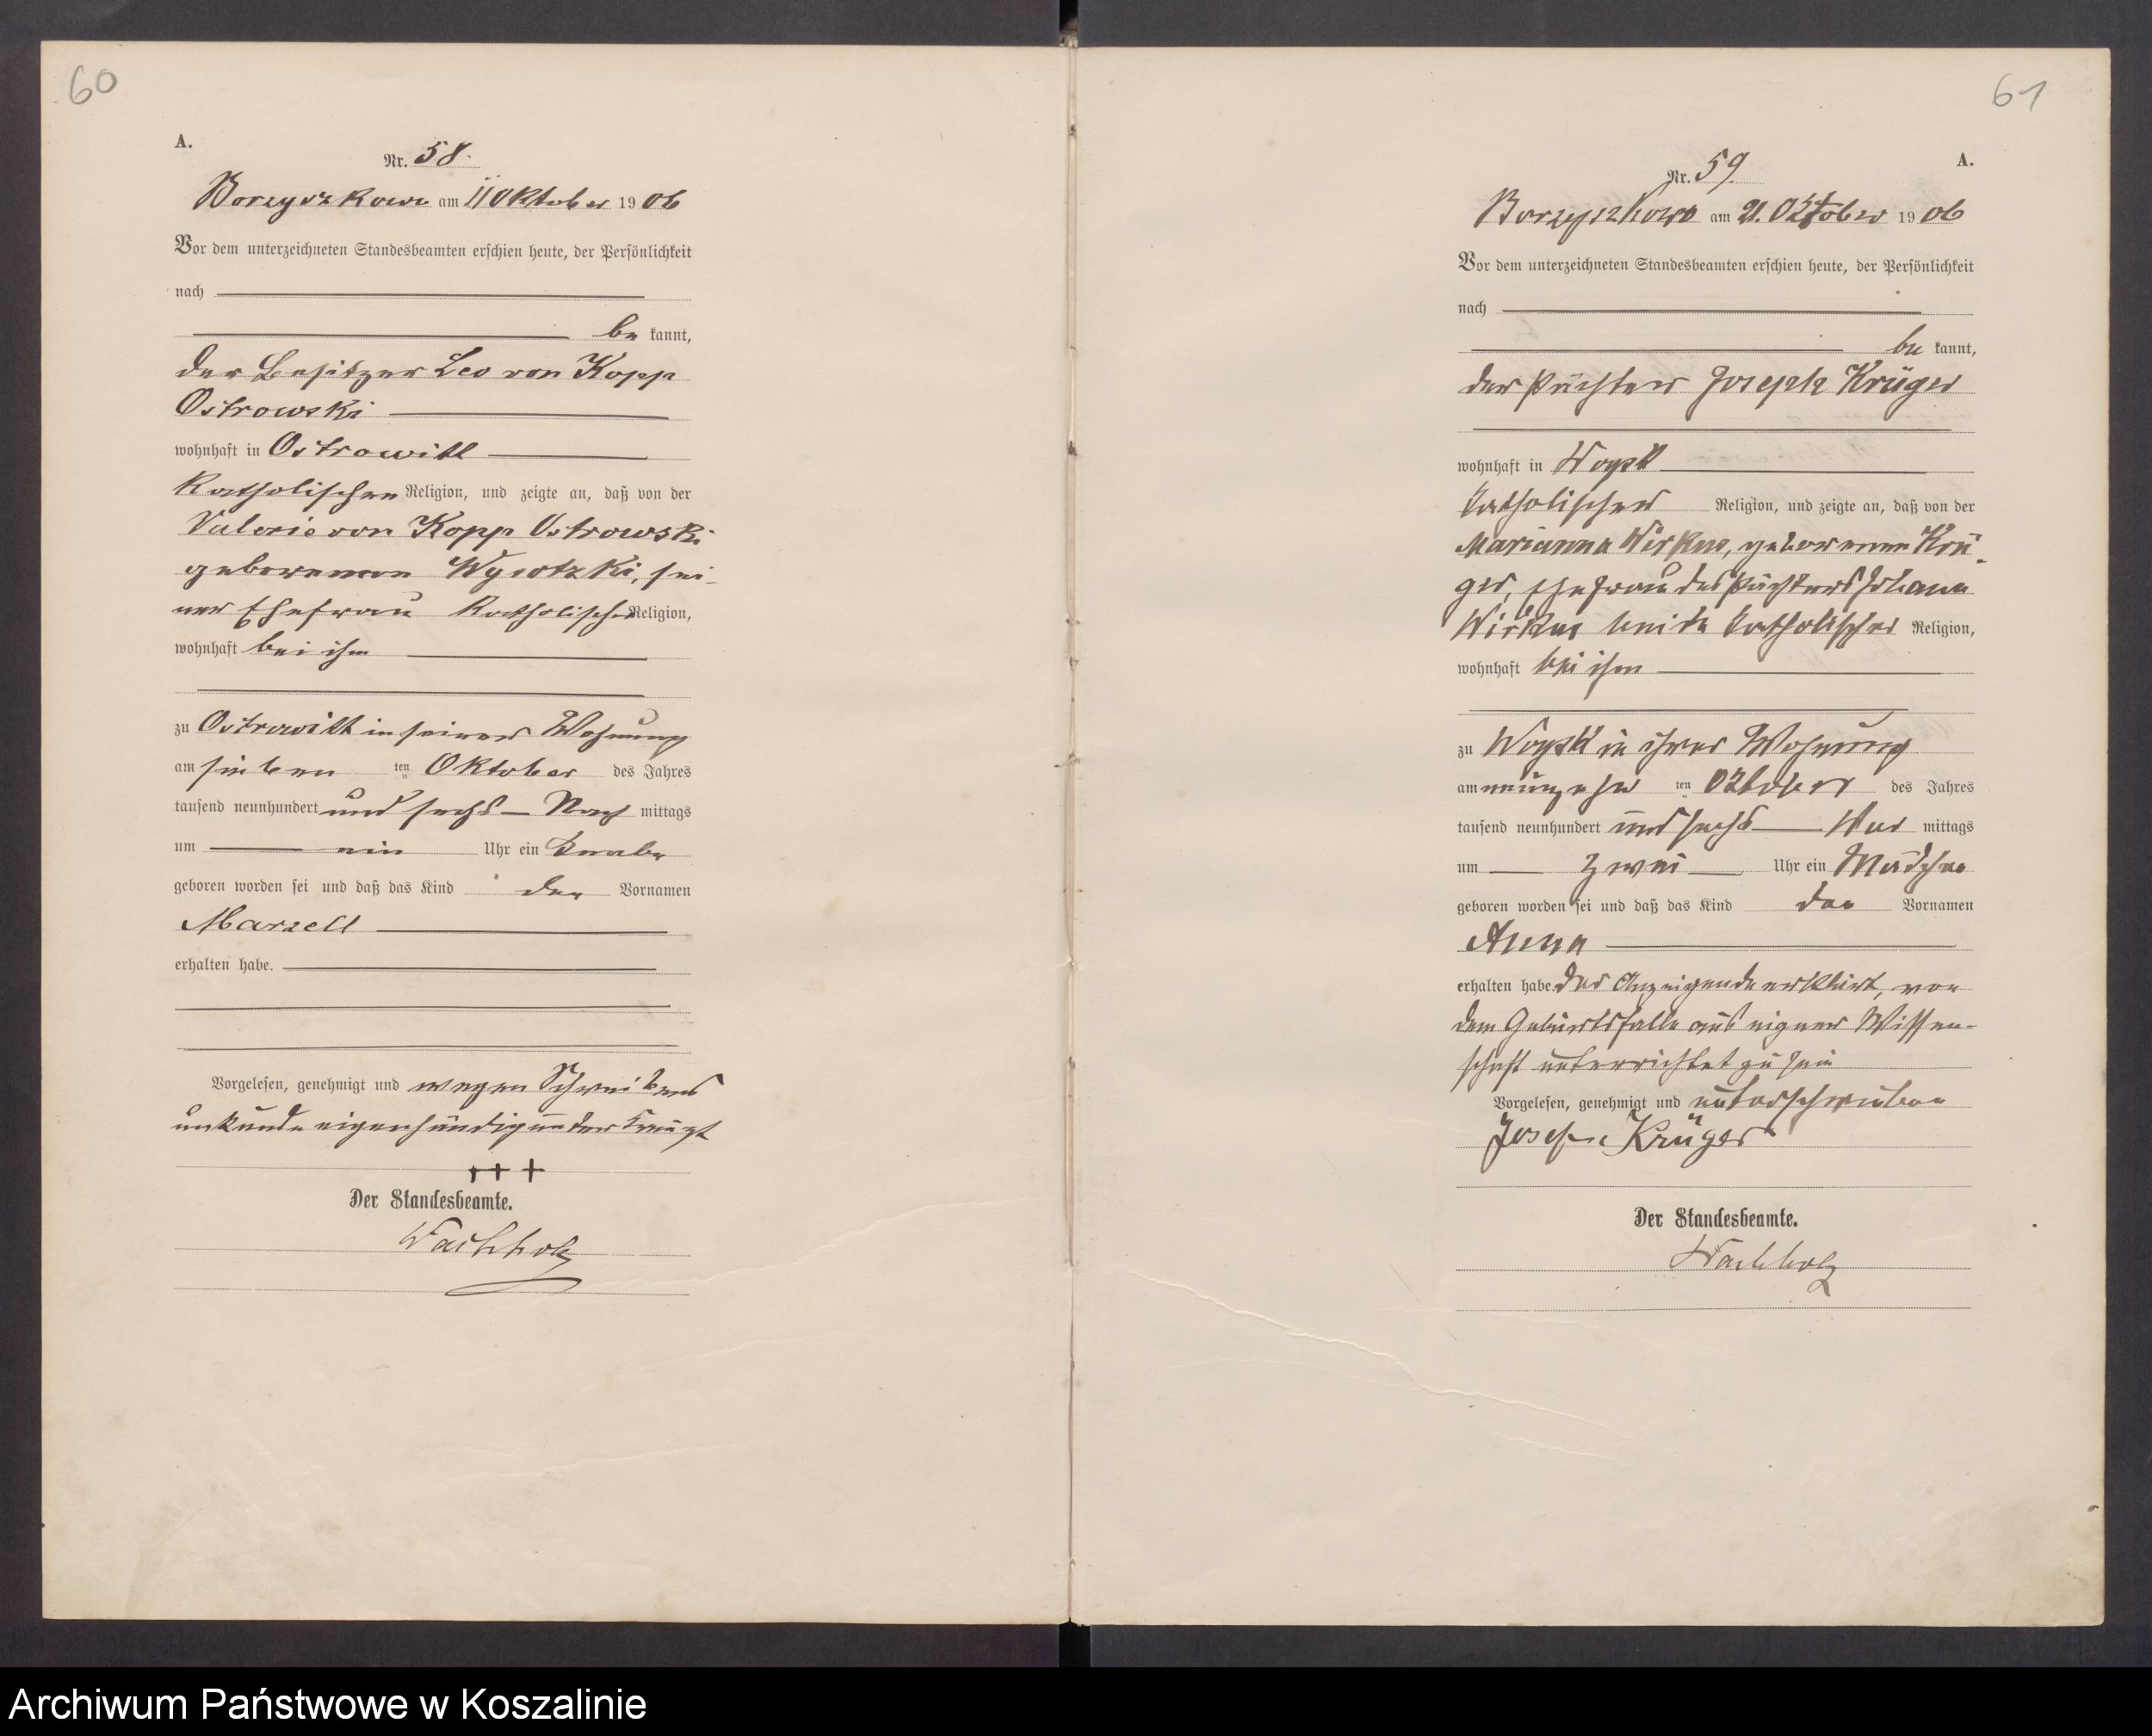 60
A.
Nr. 58.
Borzyszkowo am 11 Oktober 1906
Vor dem unterzeichneten Standesbeamten erschien heute, der Persönlichkeit
nach
be kannt,
der Besitzer Leo von Kopp
Ostrowski
wohnhaft in Ostrowitt
katholischen Religion, und zeigte an, daß von der
Valerie von Kopp Ostrowski
geborenen Wysotzki, sei-
ner Ehefrau katholischer Religion,
wohnhaft bei ihm
zu Ostrowitt in seiner Wohnung
am sieben ten Oktober des Jahres
tausend neunhundert und sechs Nach mittags
um ein Uhr ein Knabe
geboren worden sei und daß das Kind den Vornamen
Marzell
erhalten habe.
Vorgelesen, genehmigt und wegen Schreibens
unkunde eigenhändig unterkreuzt
+++
Der Standesbeamte.
Wachholz
61
A.
Nr. 59.
Borzyszkowo am 21. Oktober 1906
Vor dem unterzeichneten Standesbeamten erschien heute, der Persönlichkeit
nach
be kannt,
der Pächter Joseph Krüger
wohnhaft in Woysk
katholischer Religion, und zeigte an, daß von der
Marianna Wirkus, geborenen Krü-
ger, Ehefrau des Pächters Johann
Wirkus beide katholischer Religion,
wohnhaft bei ihm
zu Woysk in ihrer Wohnung
am neunzehn ten Oktober des Jahres
tausend neunhundert und sechs Vor mittags
um zwei Uhr ein Mädchen
geboren worden sei und daß das Kind den Vornamen
Anna
erhalten habe. Der Anzeigende erklärt, von
dem Geburtsfalle aus eigner Wissen-
schaft unterrichtet zu sein
Vorgelesen, genehmigt und unterschrieben
Joseph Krüger
Der Standesbeamte.
Wachholz
Archiwum Państwowe w Koszalinie